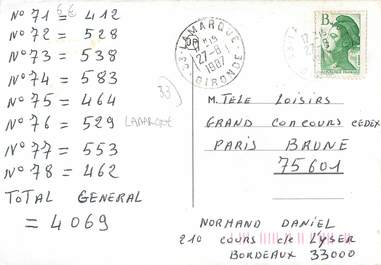 N° 71 = 412
N° 72 = 528
N° 73 = 538
N° 74 = 583
N° 75 = 464
N° 76 = 529 LAMARQUE
N° 77 = 553
N° 78 = 462
TOTAL GENERAL
= 4069
33
LAMARQUE
27-8
1987
33 GIRONDE
B
M. TELE LOISIRS
GRAND CONCOURS CEDEX
PARIS BRUNE
75601
NORMAND DANIEL
210 COURS de L'YSER
BORDEAUX 33000